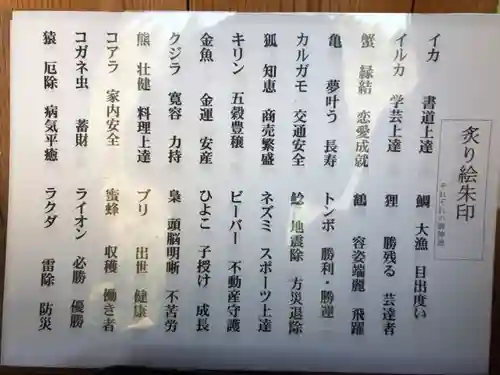 炙り絵朱印
それぞれの御神徳
イカ 書道上達 鯛 大漁 目出度い
イルカ 学芸上達 狸 勝残る 芸達者
蟹 縁結 恋愛成就 鶴 容姿端麗 飛躍
亀 夢叶う 長寿 トンボ 勝利・勝運
カルガモ 交通安全 鯰 地震除 方災退除
狐 知恵 商売繁盛 ネズミ スポーツ上達
キリン 五穀豊穣 ビーバー 不動産守護
金魚 金運 安産 ひよこ 子授け 成長
クジラ 寛容 力持 梟 頭脳明晰 不苦労
熊 壮健 料理上達 ブリ 出世 健康
コアラ 家内安全 蜜蜂 収穫 働き者
コガネ虫 蓄財 ライオン 必勝 優勝
猿 厄除 病気平癒 ラクダ 雷除 防災